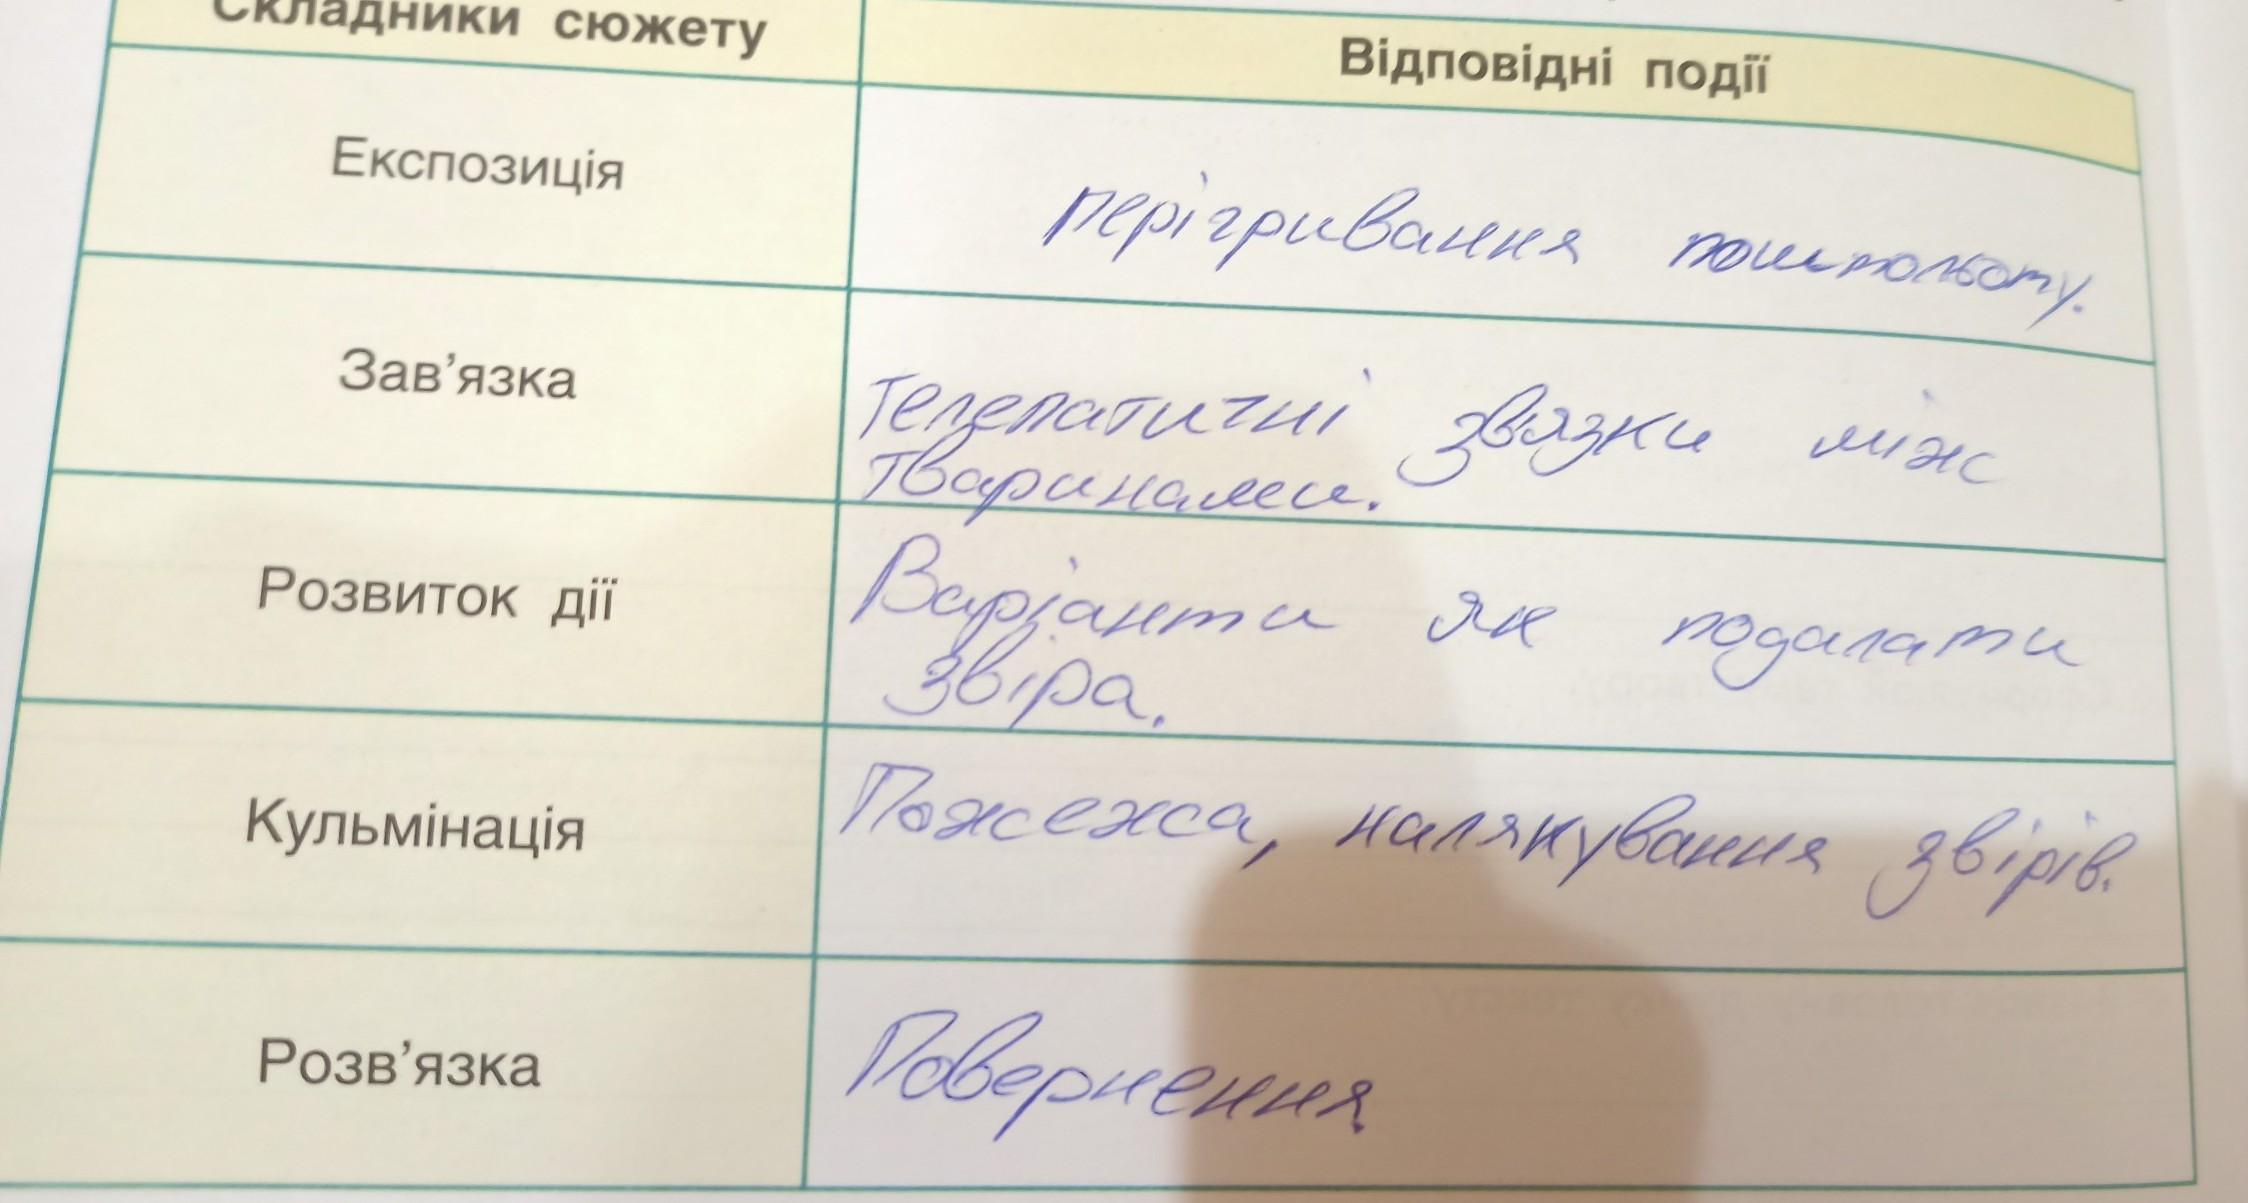 Складники сюжету
Відповідні події
Експозиція
перігривання поштольоту.
Зав’язка
Телепатичні звязки між
тваринами.
Розвиток дії
Варіанти як подалати
звіра.
Кульмінація
Пожежа, налякування звірів.
Розв’язка
Повернення